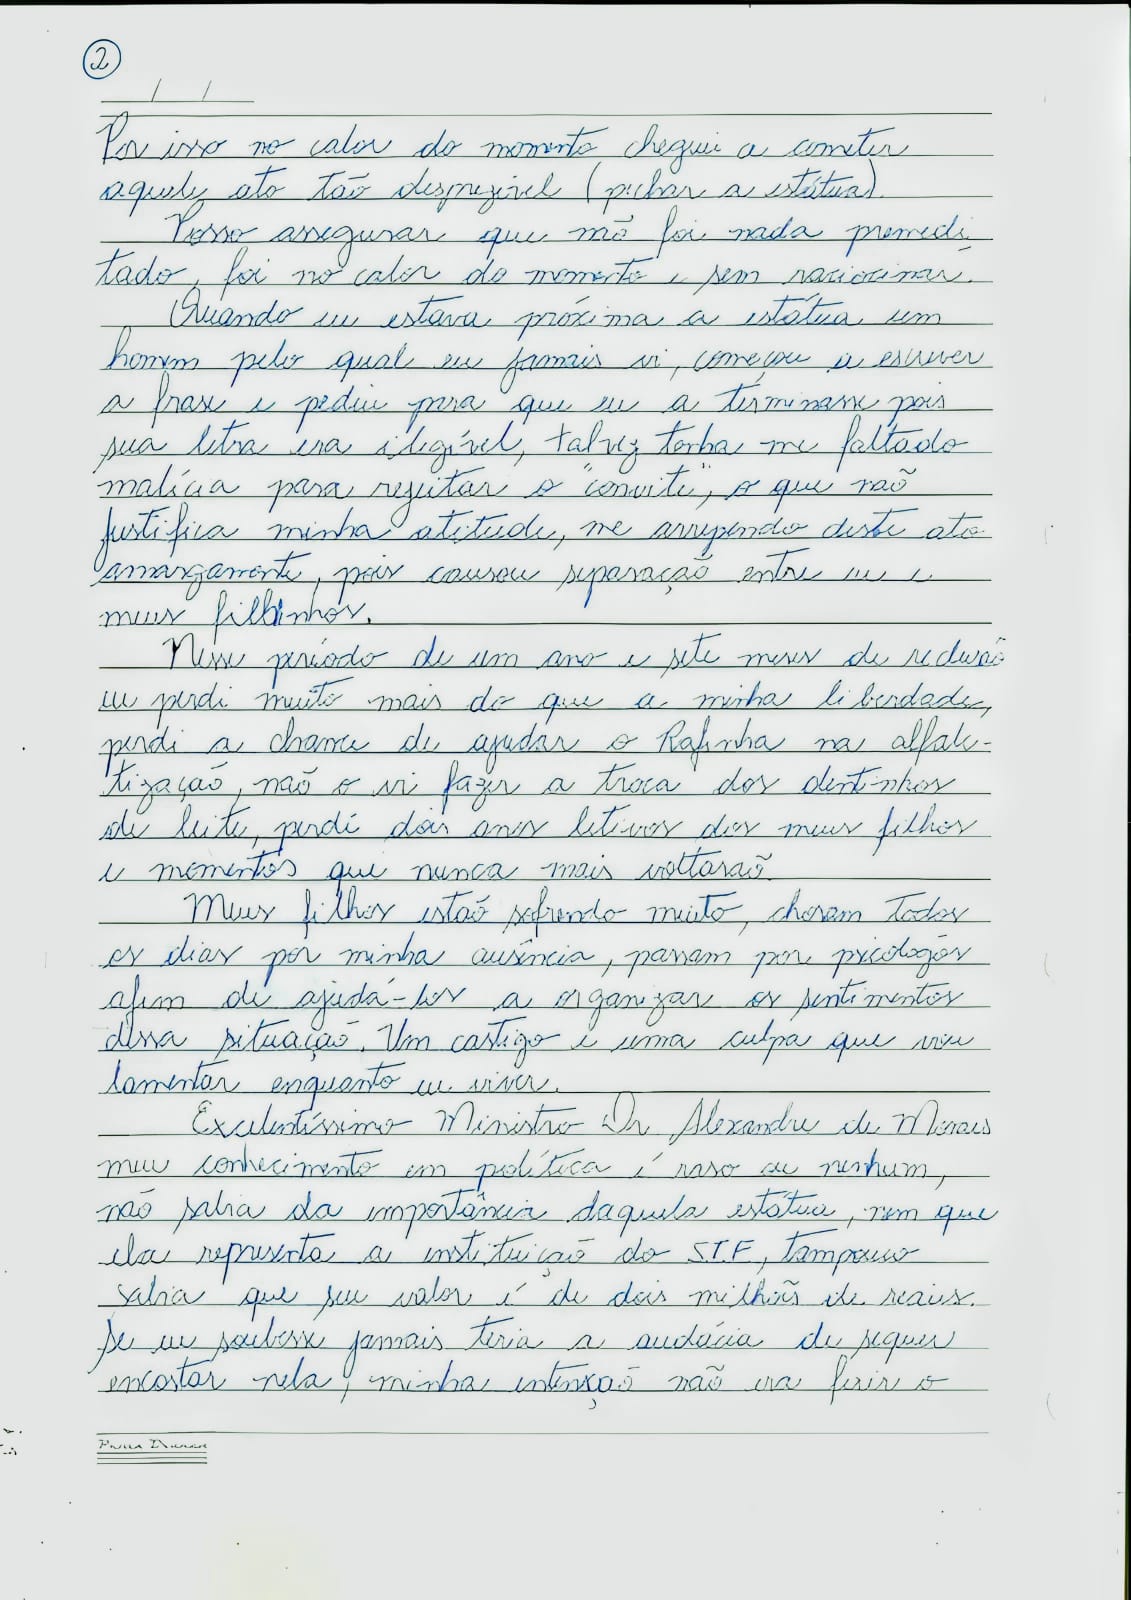 2
/ /
Por isso no calor do momento cheguei a cometer
aquele ato tão desprezível (pichar a estátua).
Posso assegurar que não foi nada premedi
tado, foi no calor do momento e sem raciocinar.
Quando eu estava próxima a estátua um
homem pelo qual eu jamais vi, começou a escrever
a frase e pediu para que eu a terminasse pois
sua letra era ilegível, talvez tenha me faltado
malícia para rejeitar o "convite", o que não
justifica minha atitude, me arrependo deste ato
amargamente, pois causou separação entre eu e
meus filhinhos.
Nesse período de um ano e sete meses de reclusão
eu perdi muito mais do que a minha liberdade,
perdi a chance de ajudar o Rafinha na alfabe-
tização, não o vi fazer a troca dos dentinhos
de leite, perdi dois anos letivos dos meus filhos
e momentos que nunca mais voltarão
Meus filhos estão sofrendo muito, choram todos
os dias por minha ausência, passam por psicológos
afim de ajudá-los a organizar os sentimentos
dessa situação. Um castigo e uma culpa que vou
lamentar enquanto eu viver.
Excelentíssimo Ministro Dr Alexandre de Moraes
meu conhecimento em política é raso ou nenhum,
não sabia da importância daquela estátua, nem que
ela representa a instituição do STF, tampouco
sabia que seu valor é de dois milhões de reais.
Se eu soubesse jamais teria a audácia de sequer
encostar nela, minha intenção não era ferir o